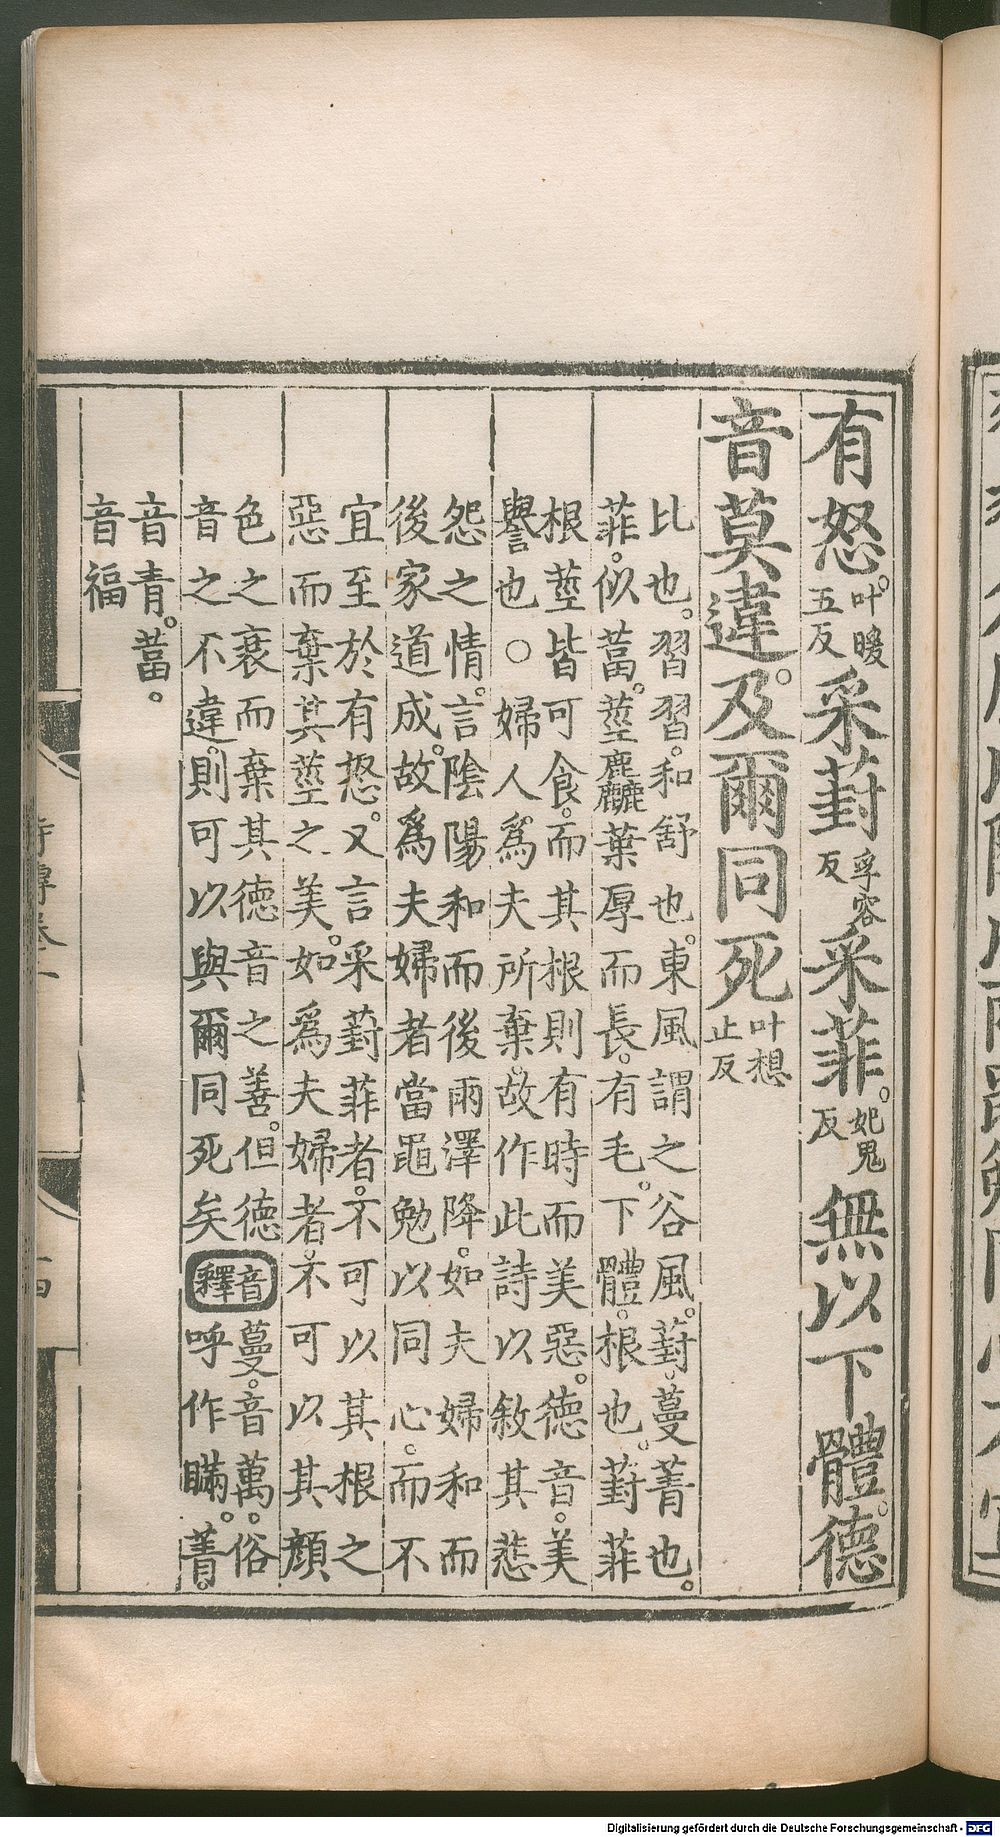 有怒。叶暖五反采葑孚容反采菲。妃鬼反無以下體。德
音莫違。及爾同死叶想止反
比也。習習。和舒也。東風謂之谷風。葑。蔓菁也。
菲。似葍。莖麤葉厚而長。有毛。下體。根也。葑菲
根莖皆可食。而其根則有時而美惡。德音。美
譽也○婦人爲夫所棄。故作此詩以敘其悲
怨之情。言陰陽和而後雨澤降。如夫婦和而
後家道成。故爲夫婦者當黽勉以同心。而不
宜至於有怒。又言采葑菲者。不可以其根之
惡而棄其莖之美。如爲夫婦者。不可以其顔
色之衰而棄其德音之善。但德
音之不違。則可以與爾同死矣
音釋
蔓。音萬。俗
呼作瞞。菁。
音青。葍。
音福
Digitalisierung gefördert durch die Deutsche Forschungsgemeinschaft - DFG